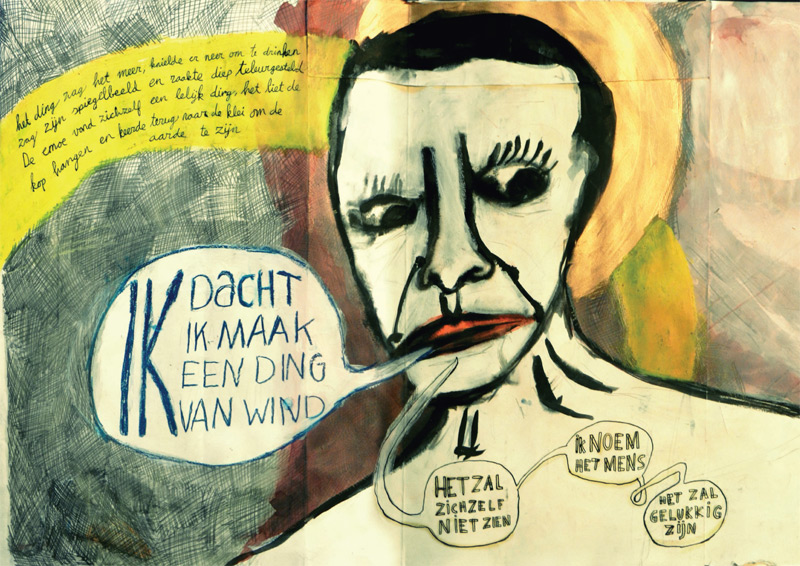 het ding zag het meer, knielde er neer om te drinken
zag zijn spiegelbeeld en raakte diep teleurgesteld
De emoe vond zichzelf een lelijk ding, het liet de
kop hangen en keerde terug naar de klei om de
aarde te zijn
IK DACHT
IK MAAK
EEN DING
VAN WIND
HET ZAL
ZICHZELF
NIET ZIEN
iK NOEM
HET MENS
HET ZAL
GELUKKIG
ZIJN